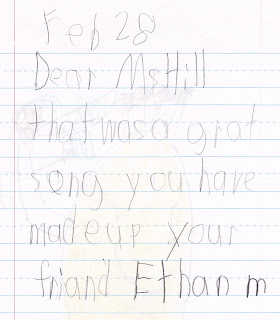 Feb 28
Dear Ms Hill
that was a grat
song you have
made up your
friand Ethan m